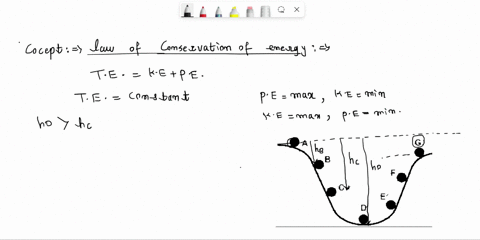 Cocept:⇒ law of Conservation of energy:⇒
T.E. = K.E + P.E.
T.E. = Constant
hD > hc
P.E = max, K.E = min
K.E = max, P.E = min.
A
B
C
D
E
F
G
hB
hc
hD